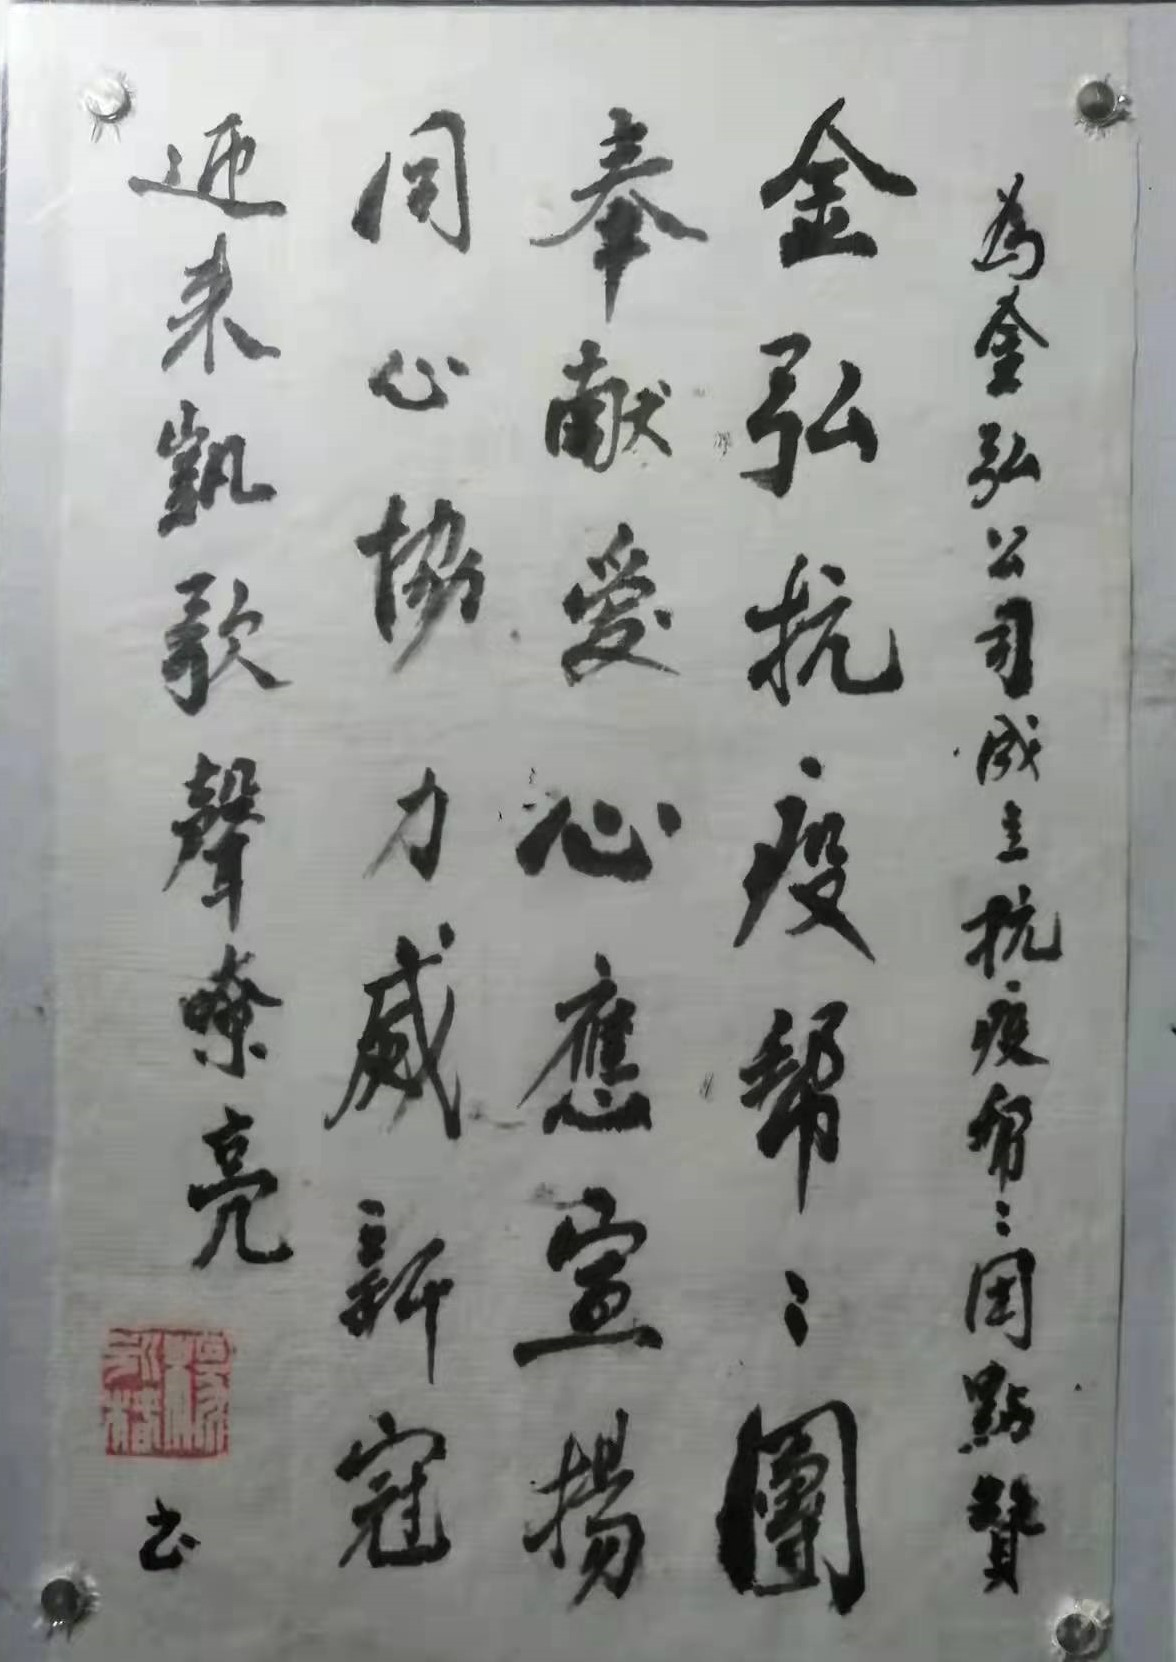 為金弘公司成立抗疫帮〻团點贊
金弘抗疫幫〻團
奉献愛心應宣揚
同心協力滅新冠
迎来凱歌聲嘹亮
书